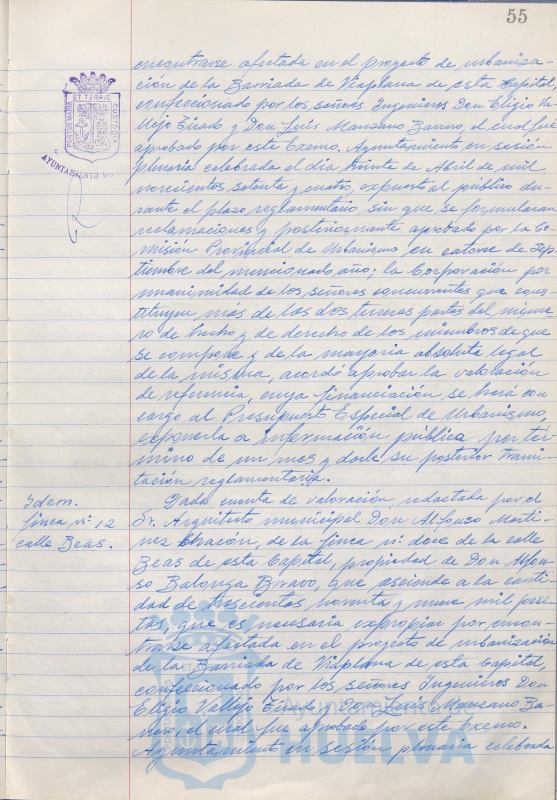 55
encontrarse afectada en el proyecto de urbaniza-
ción de la Barriada de Viaplana de esta Capital,
confeccionado por los señores Ingenieros Don Eligio Va-
llejo Tirado y Don Luis Manzano Barrero, el cual fué
aprobado por este Excmo. Ayuntamiento en sesión
plenaria celebrada el dia treinta de Abril de mil
novecientos setenta y cuatro, expuesto al público du-
rante el plazo reglamentario sin que se formularan
reclamaciones y posteriormente aprobado por la Co-
misión Provincial de Urbanismo en catorce de Sep-
tiembre del mencionado año; la Corporación por
unanimidad de los señores concurrentes que cons-
tituyen más de las dos terceras partes del núme-
ro de hecho y de derecho de los miembros de que
se compone y de la mayoria absoluta legal
de la misma, acordó aprobar la valoración
de referencia, cuya financiación se hará con
cargo al Presupuesto Especial de Urbanismo,
exponerla a información pública por tér
mino de un mes y darle su posterior trami-
tación reglamentaria.
Idem.
finca nº 12
calle Beas.
Dada cuenta de valoración, redactada por el
Sr. Arquitecto municipal Don Alfonso Marti-
nez Chacón, de la finca nº doce de la calle
Beas de esta Capital, propiedad de Don Alfon-
so Balonga Bravo, que asciende a la canti-
dad de trescientas noventa y nueve mil pese-
tas, que es necesaria expropiar por encon-
trarse afectada en el proyecto de urbanización
de la Barriada de Viaplana de esta Capital,
confeccionado por los señores Ingenieros Don
Eligio Vallejo Tirado y Don Luis Manzano Ba-
rrero, el cual fue aprobado por este Excmo.
Ayuntamiento en sesión plenaria celebrada
PORTUS MARIS ET TERRAE CUSTODIA
AYUNTAMIENTO
HUELVA